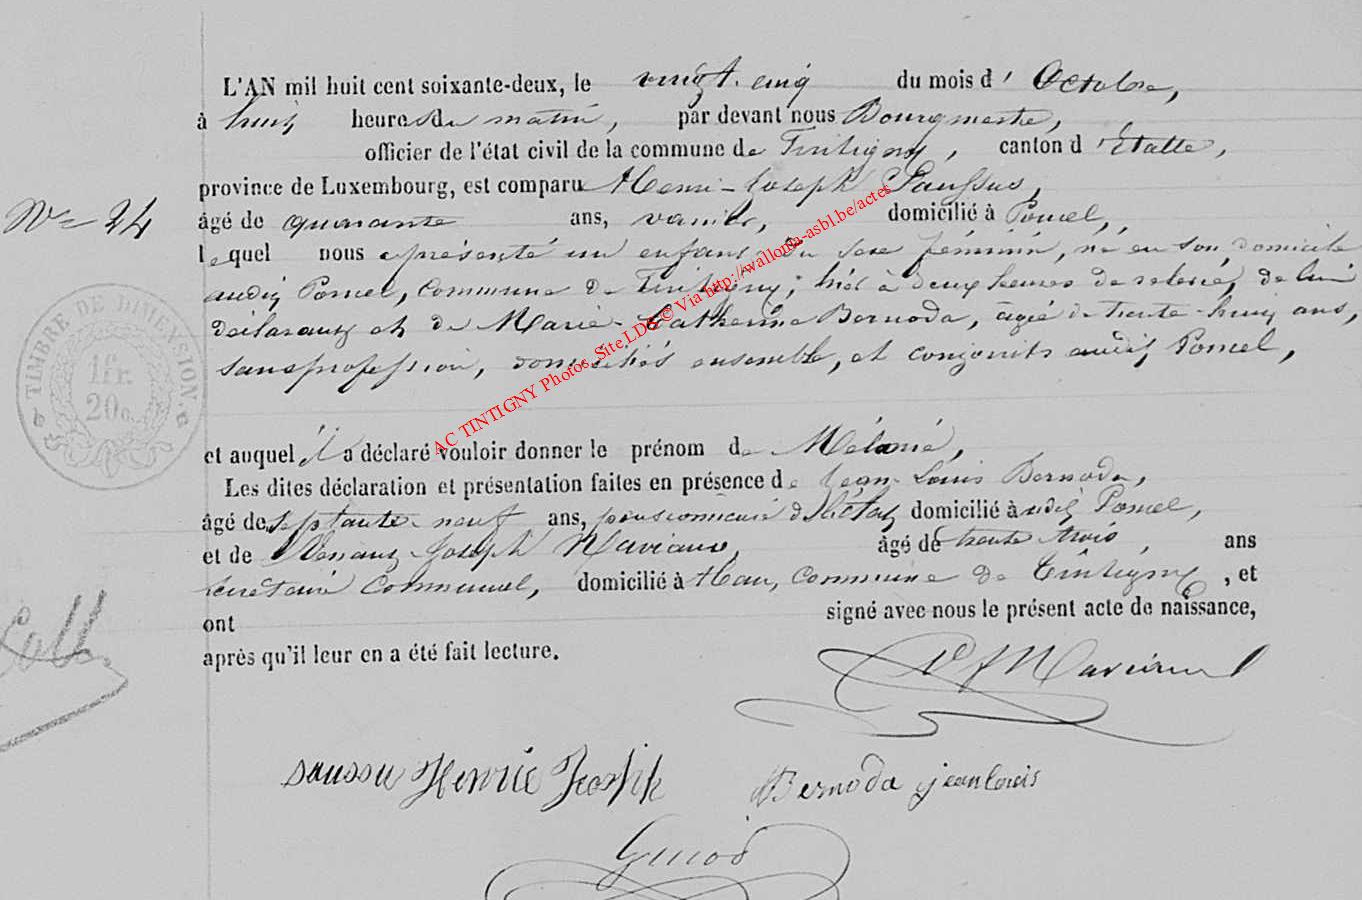 L'AN mil huit cent soixante-deux, le vingt-cinq du mois d'Octobre,
à huit heures du matin, par devant nous Bourgmestre,
officier de l'état civil de la commune de Tintigny, canton d'Étalle,
province de Luxembourg, est comparu Henri-Joseph
N° 24
âgé de quarante ans, vanier, domicilié à Poncel,
lequel nous a présenté un enfant du sexe féminin, né en son domicile
audit Poncel, Commune de Tintigny, hier à deux heures de relevée, de lui
déclarant et de Marie-Catherine Bernoda, âgée de trente-huit ans,
sans profession, domiciliés ensemble, et conjoints audit Poncel,
TIMBRE DE DIMENSION
1 fr.
20c.
AC TINTIGNY Photos_SiteLDC© Via http://wallonia-asbl.be/actes
et auquel il a déclaré vouloir donner le prénom de Mélanie,
Les dites déclaration et présentation faites en présence de Jean-Louis Bernoda,
âgé de septante-neuf ans, pensionnaire de l'état, domicilié audit Poncel,
et de Joseph âgé de trente trois, ans
secrétaire Communal, domicilié à Han, Commune de Tintigny, et
ont signé avec nous le présent acte de naissance,
après qu'il leur en a été fait lecture.
saussu Henrie Joseph Bernoda jean louis